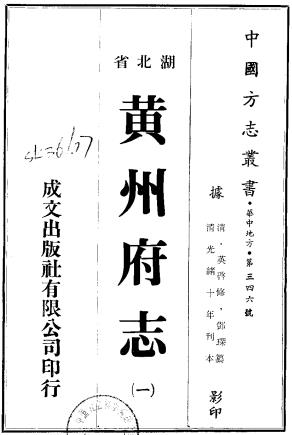 中國方志叢書•華中地方•第三四六號
據
清•英啓修，鄧琛纂
清光緒十年刊本
影印
湖北省
黄州府志
(一)
成文出版社有限公司印行